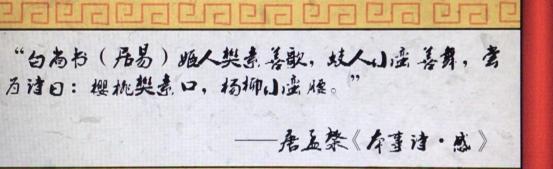 “白尚书（居易）姬人樊素善歌，妓人小蛮善舞，尝
为诗曰：樱桃樊素口，杨柳小蛮腰。”
——唐孟棨《本事诗·感》